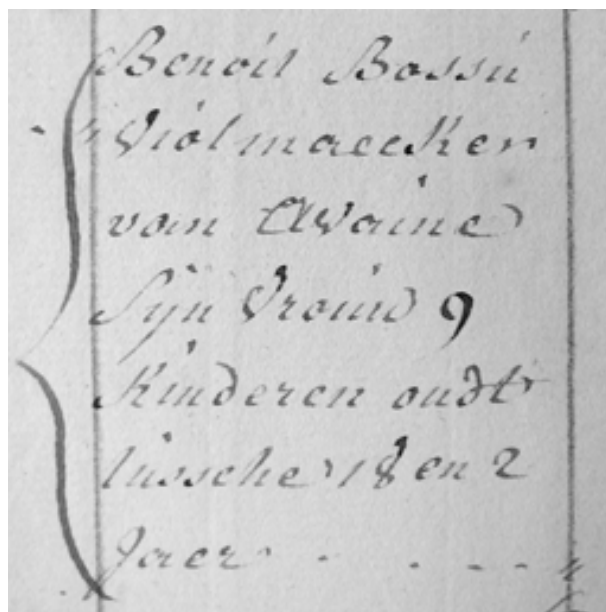 Benoit Bossu
Violmaecker
van Avaine
Syn Vrouw 9
Kinderen oudt
tussche 18 en 2
Jaer - - - - "